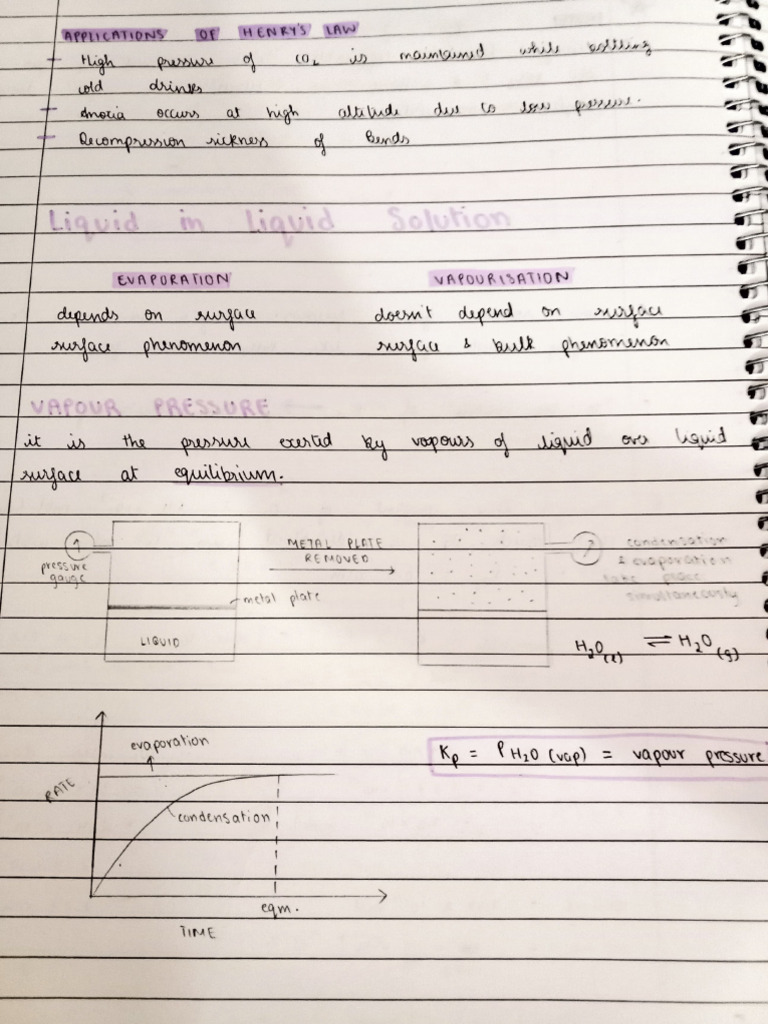 APPLICATIONS OF HENRY'S LAW
- High pressure of CO₂ is maintained while bottling
cold drinks
- Anoxia occurs at high altitude due to low pressure.
- Decompression sickness of Bends
Liquid in Liquid Solution
EVAPORATION VAPOURISATION
depends on surface doesn't depend on surface
surface phenomenon surface & bulk phenomenon
VAPOUR PRESSURE
it is the pressure exerted by vapours of liquid over liquid
surface at equilibrium.
METAL PLATE
REMOVED
pressure
gauge
metal plate
LIQUID
condensation
& evaporation
take place
simultaneously
H₂O(l) ⇌ H₂O(g)
evaporation
Kp = P H₂O (vap) = vapour pressure
RATE
condensation
eqm.
TIME